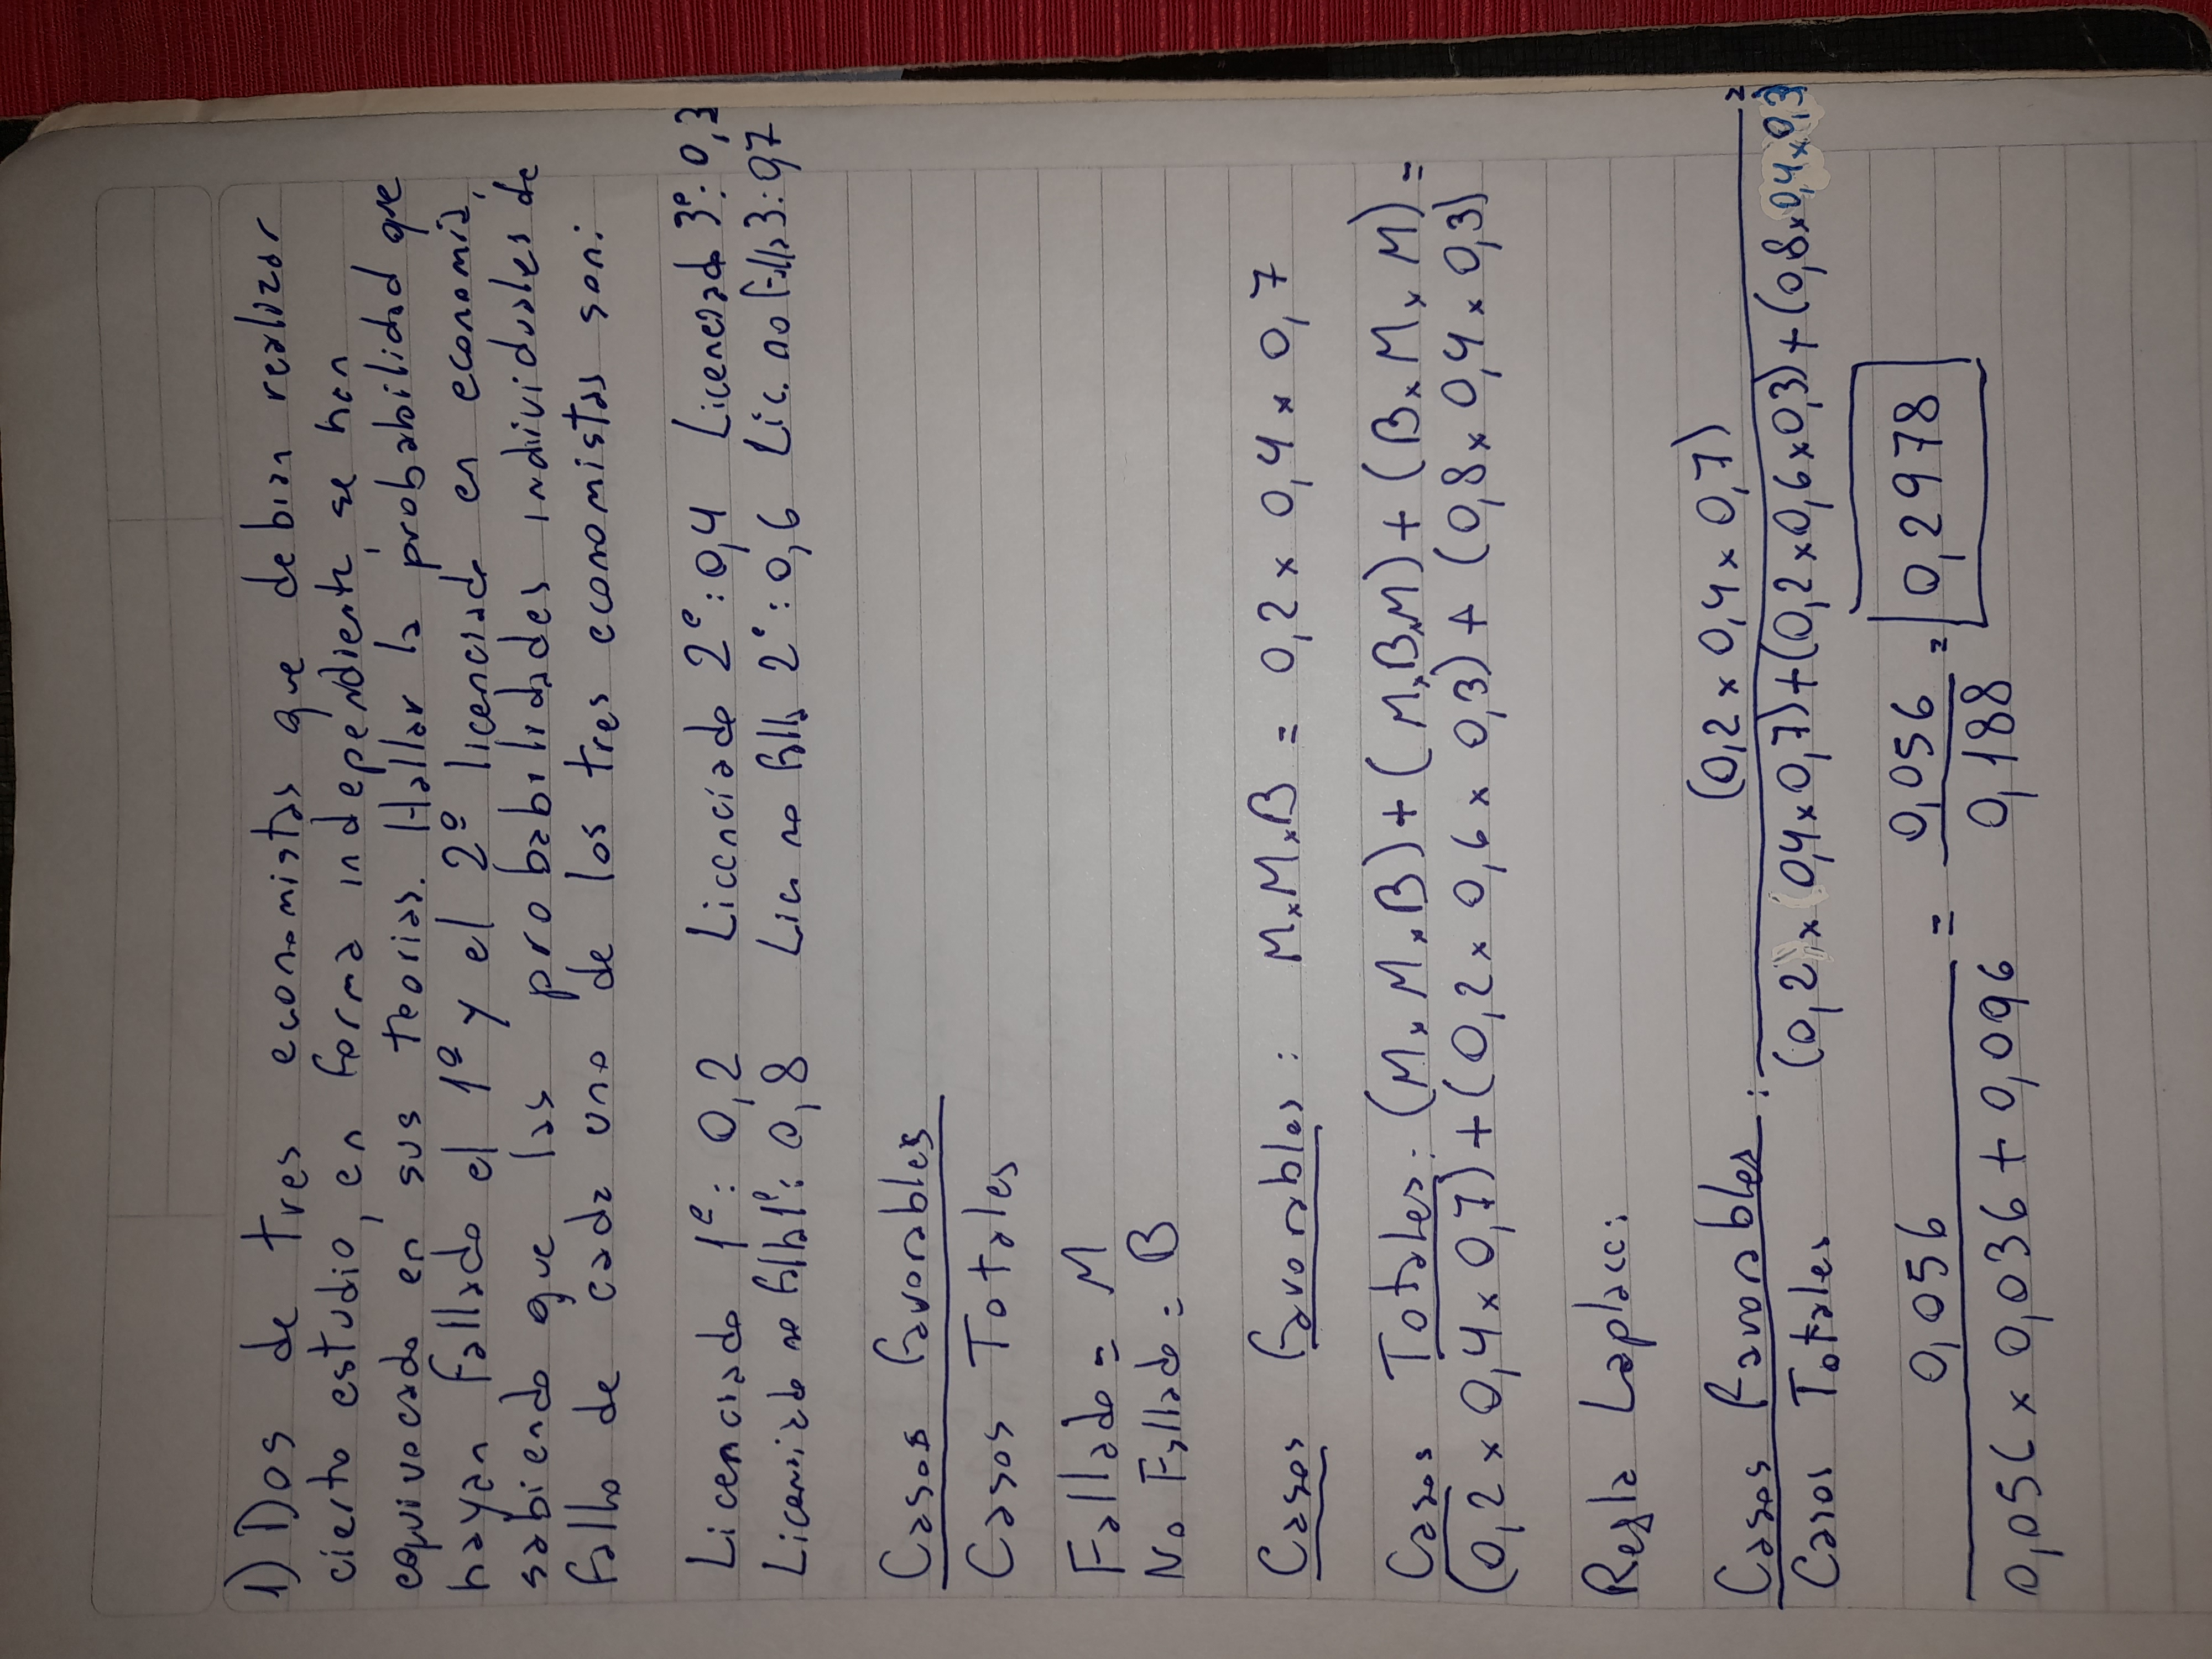 1) Dos de tres economistas que debian realizar
cierto estudio, en forma independiente, se han
equivocado en sus teorias. Hallar la probabilidad que
hayan fallado el 1º y el 2º licenciado en economia,
sabiendo que las probabilidades individuales de
fallo de cada uno de los tres economistas son:
Licenciado 1º: 0,2 Licenciado 2º: 0,4 Licenciado 3º: 0,3
Licenciado no falla 1º: 0,8 Lic. no falla 2º: 0,6 Lic. no falla 3: 0,7
Casos favorables
Casos Totales
Fallado = M
No Fallado = B
Casos favorables: M x M x B = 0,2 x 0,4 x 0,7
Casos Totales: (M x M x B) + (M x B x M) + (B x M x M) =
(0,2 x 0,4 x 0,7) + (0,2 x 0,6 x 0,3) + (0,8 x 0,4 x 0,3)
Regla Laplace:
Casos favorables : (0,2 x 0,4 x 0,7) =
Casos Totales (0,2 x 0,4 x 0,7) + (0,2 x 0,6 x 0,3) + (0,8 x 0,4 x 0,3)
0,056 = 0,056 = 0,2978
0,056 x 0,036 + 0,096 0,188